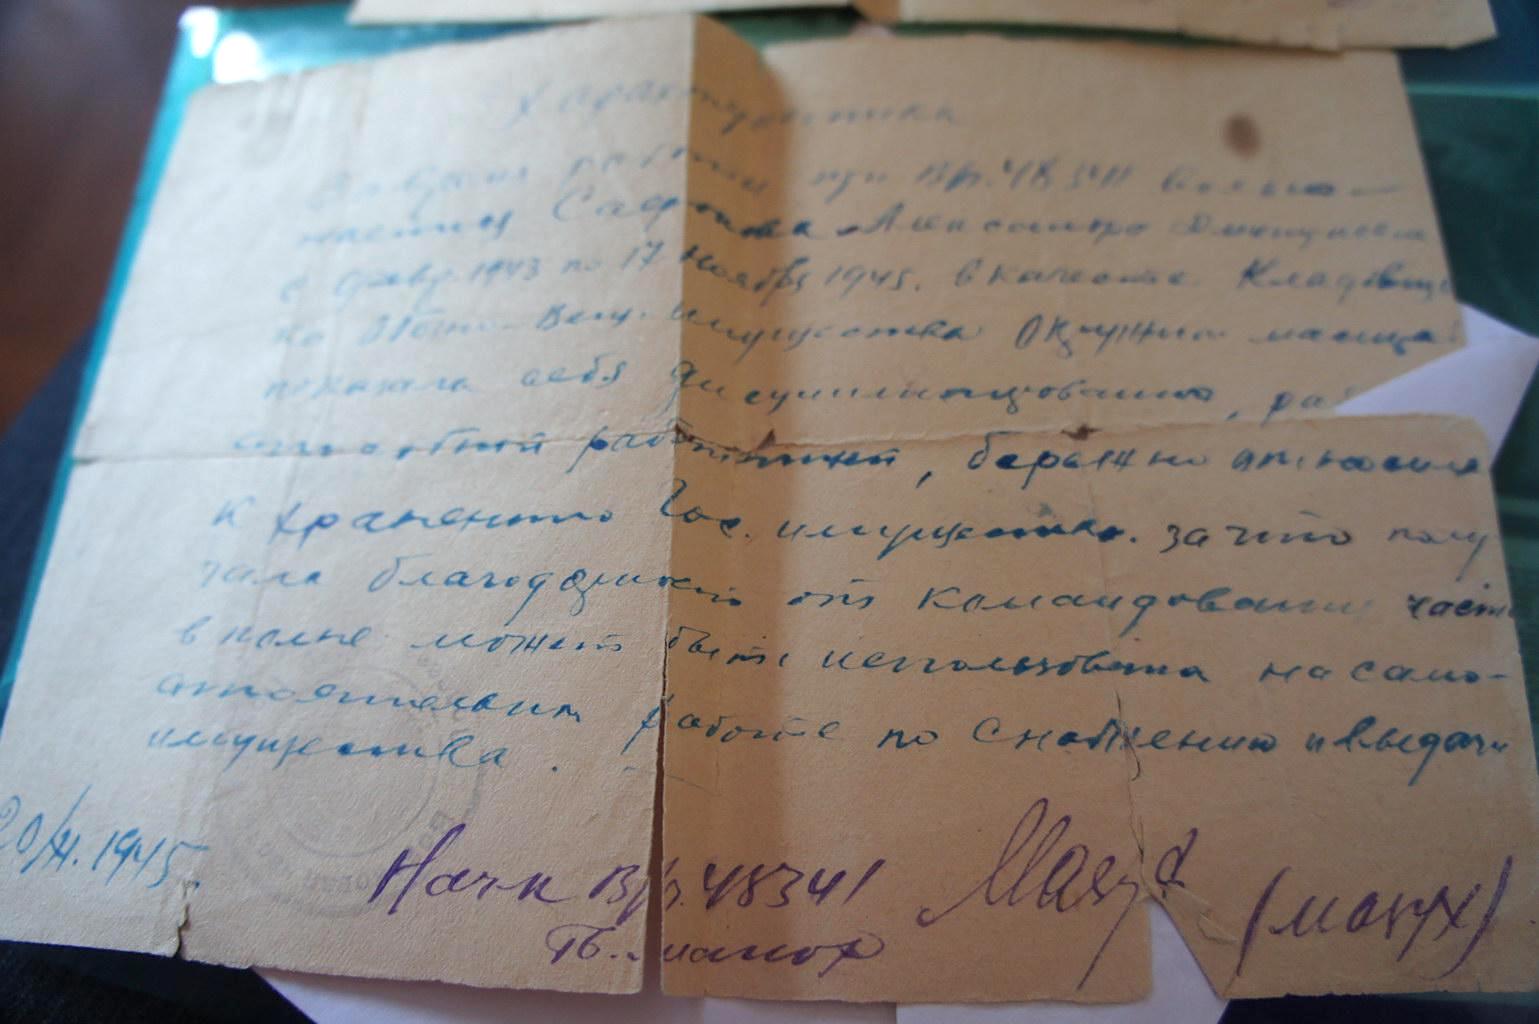 Характеристика
За время работы при В/ч. 48341 вольно-
наемной Сафонова Александра Дмитриевна
с февр. 1943 по 17 ноября 1945. в качестве Кладовщи
ка Обозно-Вещ. имущества
показала себя дисциплинированной,
способной работницей, бережно относилась
к хранению Гос. имущества. за что полу
чала благодарность от командования части
вполне может быть использована на само-
стоятельной работе по снабжению и выдачи
имущества.
20/XI.1945
Начк В/ч. 48341